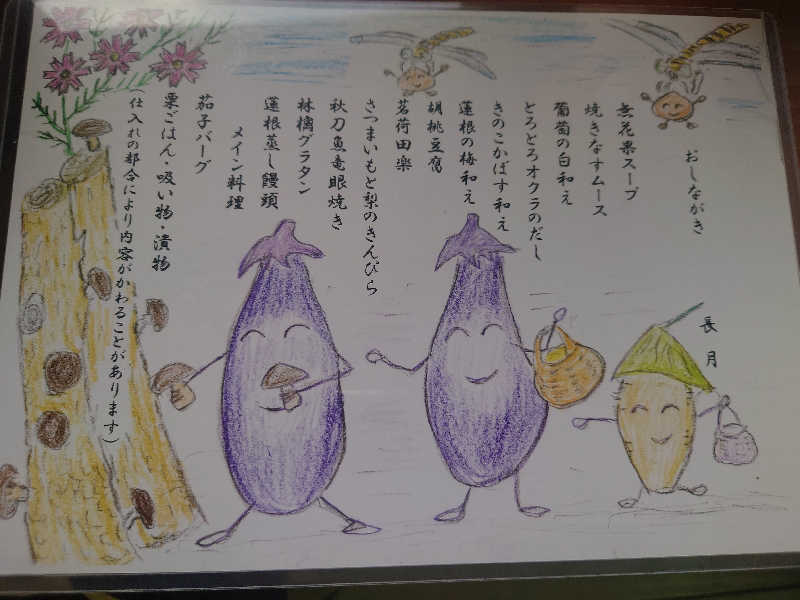 おしながき
無花果スープ
焼きなすムース
葡萄の白和え
とろとろオクラのだし
きのこかぼす和え
蓮根の梅和え
胡桃豆腐
茗荷田楽
さつまいもと梨のきんぴら
秋刀魚竜眼焼き
林檎グラタン
蓮根蒸し饅頭
メイン料理
茄子バーグ
栗ごはん・吸い物・漬物
(仕入れの都合により内容がかわることがあります)
長月